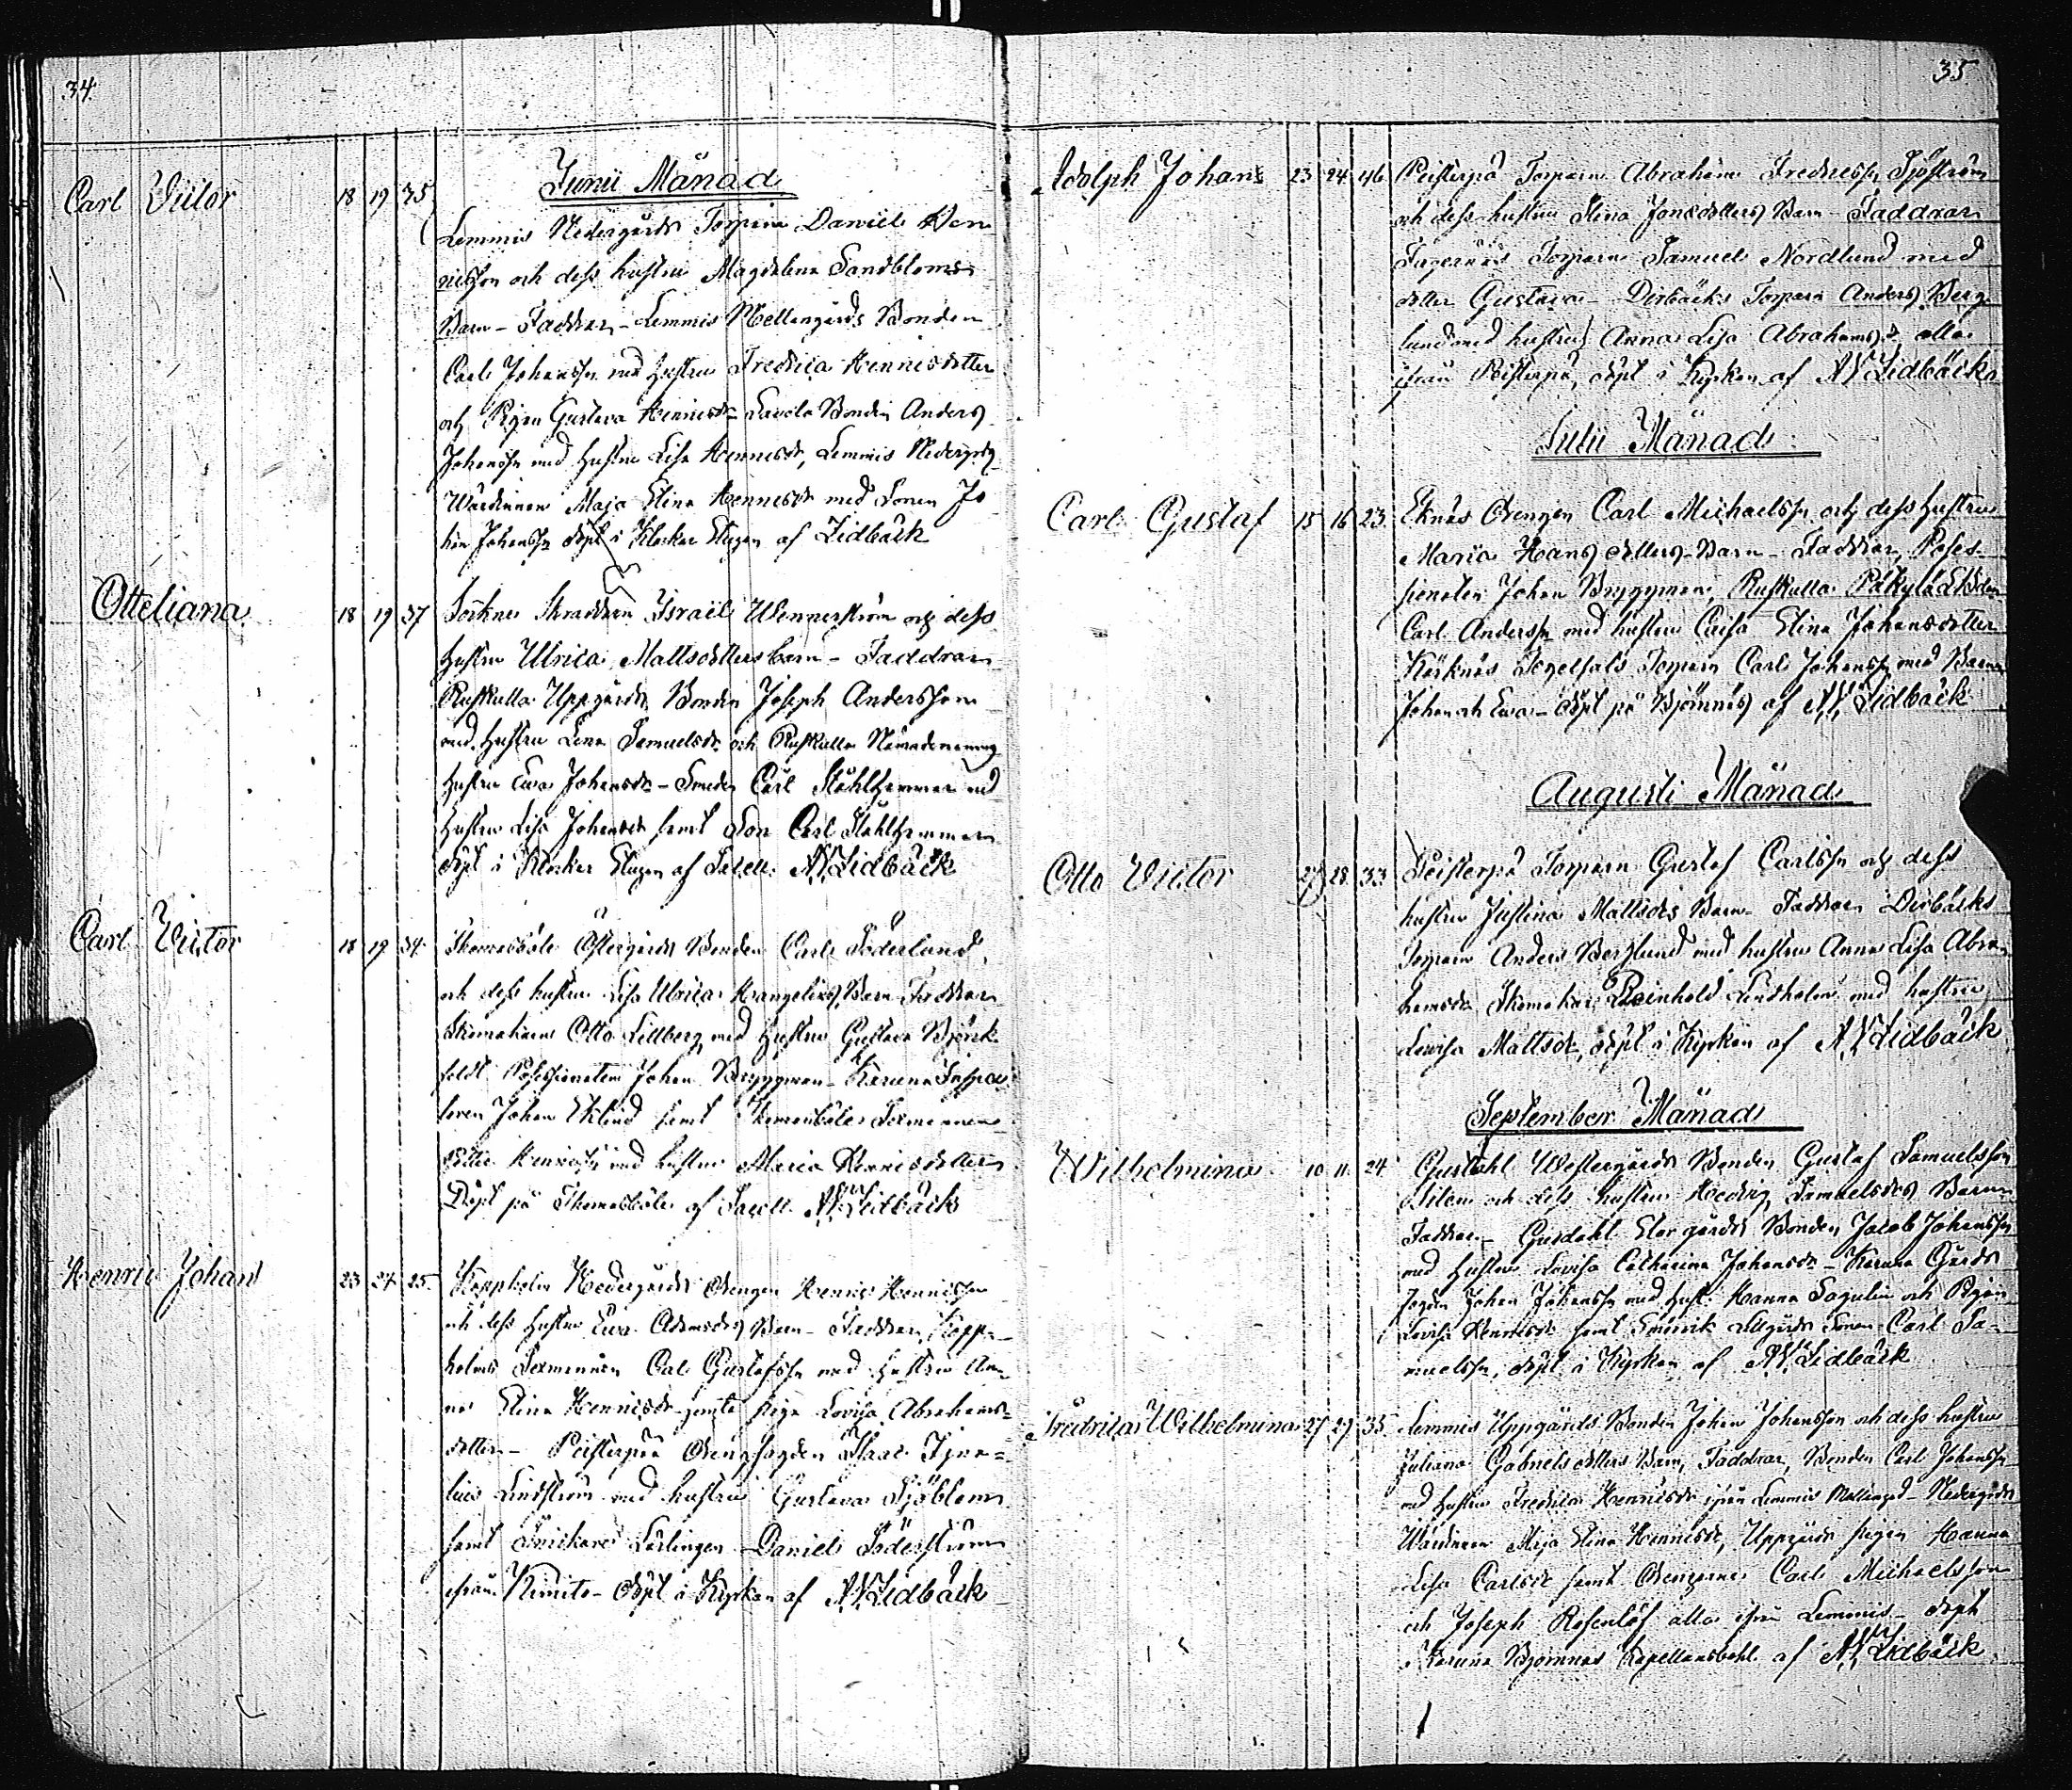 34.
Junii Månad
Carl Victor 18 19 35.
Lemmis Nedergårds Torparen Daniel Hen
ricsson och dess hustru Magdalena Sandbloms
Barn – Faddrar – Lemmis Mellangårds Bonden
Carl Johansson med Hustru Fredrica Henricsdotter
och Pigan Gustava Henricsdr – Bonden Anders
Johansson med Hustru Lisa Henricsdr, Lemmis Nedergårds
Wärdinnan Maja Stina Henricsdr med Sonen Jo
han Johansson döpt i Klockar Stugan af Lidbäck
Otteliana 18 19 37
Sockne Skraddaren Israel Wennerström och dess
Hustru Ulrica Mattsdotters barn – Faddrar
Ruskulla Uppgårds Bonden Joseph Andersson
med Hustru Lena Samuelsdr och Ruskulla
Hustru Eva Johansdr – Smeden Carl Stålhammar med
Hustru Lisa Johansdr samt Son Carl Stålhammar
döpt i Klockar Stugan af A. W. Lidbäck
Carl Victor 18 19 34.
Thomasböle Östergårds Bonden Carl Söderlund
och dess hustru Lisa Ulrica Barn Faddrar
Skomakaren Otto Lillberg med Hustru Gustava Björk
feldt Possessionaten Johan Bryggman – Karuna Inspec
toren Johan Eklund samt Thomasböle Sexmannen
Henricsson med hustru Maria Henricsdotter
Döpt på Thomasböle af A. W. Lidbäck
Henric Johan 23 24 25.
Koppholm Nedergårds Drengen Henric Henricsson
och dess Hustru Eva Adamsdrs Barn – Faddrar, Kopp-
holms Sexmannen Carl Gustafsson med Hustru An-
na Stina Henricsdr jemte pigan Lovisa Abrahams-
dotter – Peisterpä Isaac
Lindström med hustru Gustava Sjöblom
samt Snickare Lärlingen Daniel Söderström
ifrån Kimito – döpt i Kyrkan af A. W. Lidbäck
35
Adolph Johans 23 24 46
Peisterpä Torparen Abraham Fredricsson Sjöström
och dess hustru Stina Jonasdotters Barn – Faddrar
Torparen Samuel Nordlund med
dotter Gustava – Dirbäcks Torparen Anders Berg
lund med hustru Anna Lisa Abrahamsdr alla
ifrån Peisterpä, döpt i Kyrkan af A. W. Lidbäck
Julii Månad
Carl Gustaf 15 16 23.
Eknäs Drengen Carl Michaelsson och dess Hustru
Maria Hansdotters Barn – Faddrar, Poses-
sionaten Johan Bryggman, Ruskulla Bonden
Carl Andersson med hustru Caisa Stina Johansdotter
Torparen Carl Johansson med Barnen
Johan och Eva – döpt på Björnnäs af A. W. Lidbäck
Augusti Månad
Otto Victor 27 28 33
Peisterpä Torparen Gustaf Carlsson och dess
hustru Justina Mattsdrs Barn – Faddrar Dirbäcks
Torparen Anders Berglund med hustru Anna Lisa Abra
hamsdr Skomakaren Reinhold Lindholm med hustru
Lovisa Mattsdr, döpt i Kyrkan af A. W. Lidbäck
September Månad
Wilhelmina 10 11 24
Gustahl Westergårds Bonden Gustaf Samuelsson
och dess hustru Hedvig Samuelsdrs Barn
Faddrar – Gusdahl Storgårds Bonden Jacob Johansson
med Hustru Lovisa Catharina Johansdr – Karuna Gårds
fogden Johan Johansson med Hust. Hanna Sagulin och Pigan
Lovisa Henricsdr samt Sonen Carl Sa-
muelsson, döpt i Kyrkan af A. W. Lidbäck
Fredrica Wilhelmina 27 29 35
Lemmis Uppgårds Bonden Johan Johansson och dess hustru
Juliana Gabrielsdotters Barn, Faddrar, Bonden Carl Johansson
med Hustru Fredrica Henricsdr ifrån Lemmis Mellangrd – Nedergårds
Wärdinnan Maja Stina Henricsdr, Uppgårds pigan Hanna
Lisa Carlsdr samt Drengarne Carl Michaelsson
och Joseph Rosenlöf alla ifrån Lemmis – döpt
i Karuna Björnnäs Kapellansbohl af A. W. Lidbäck